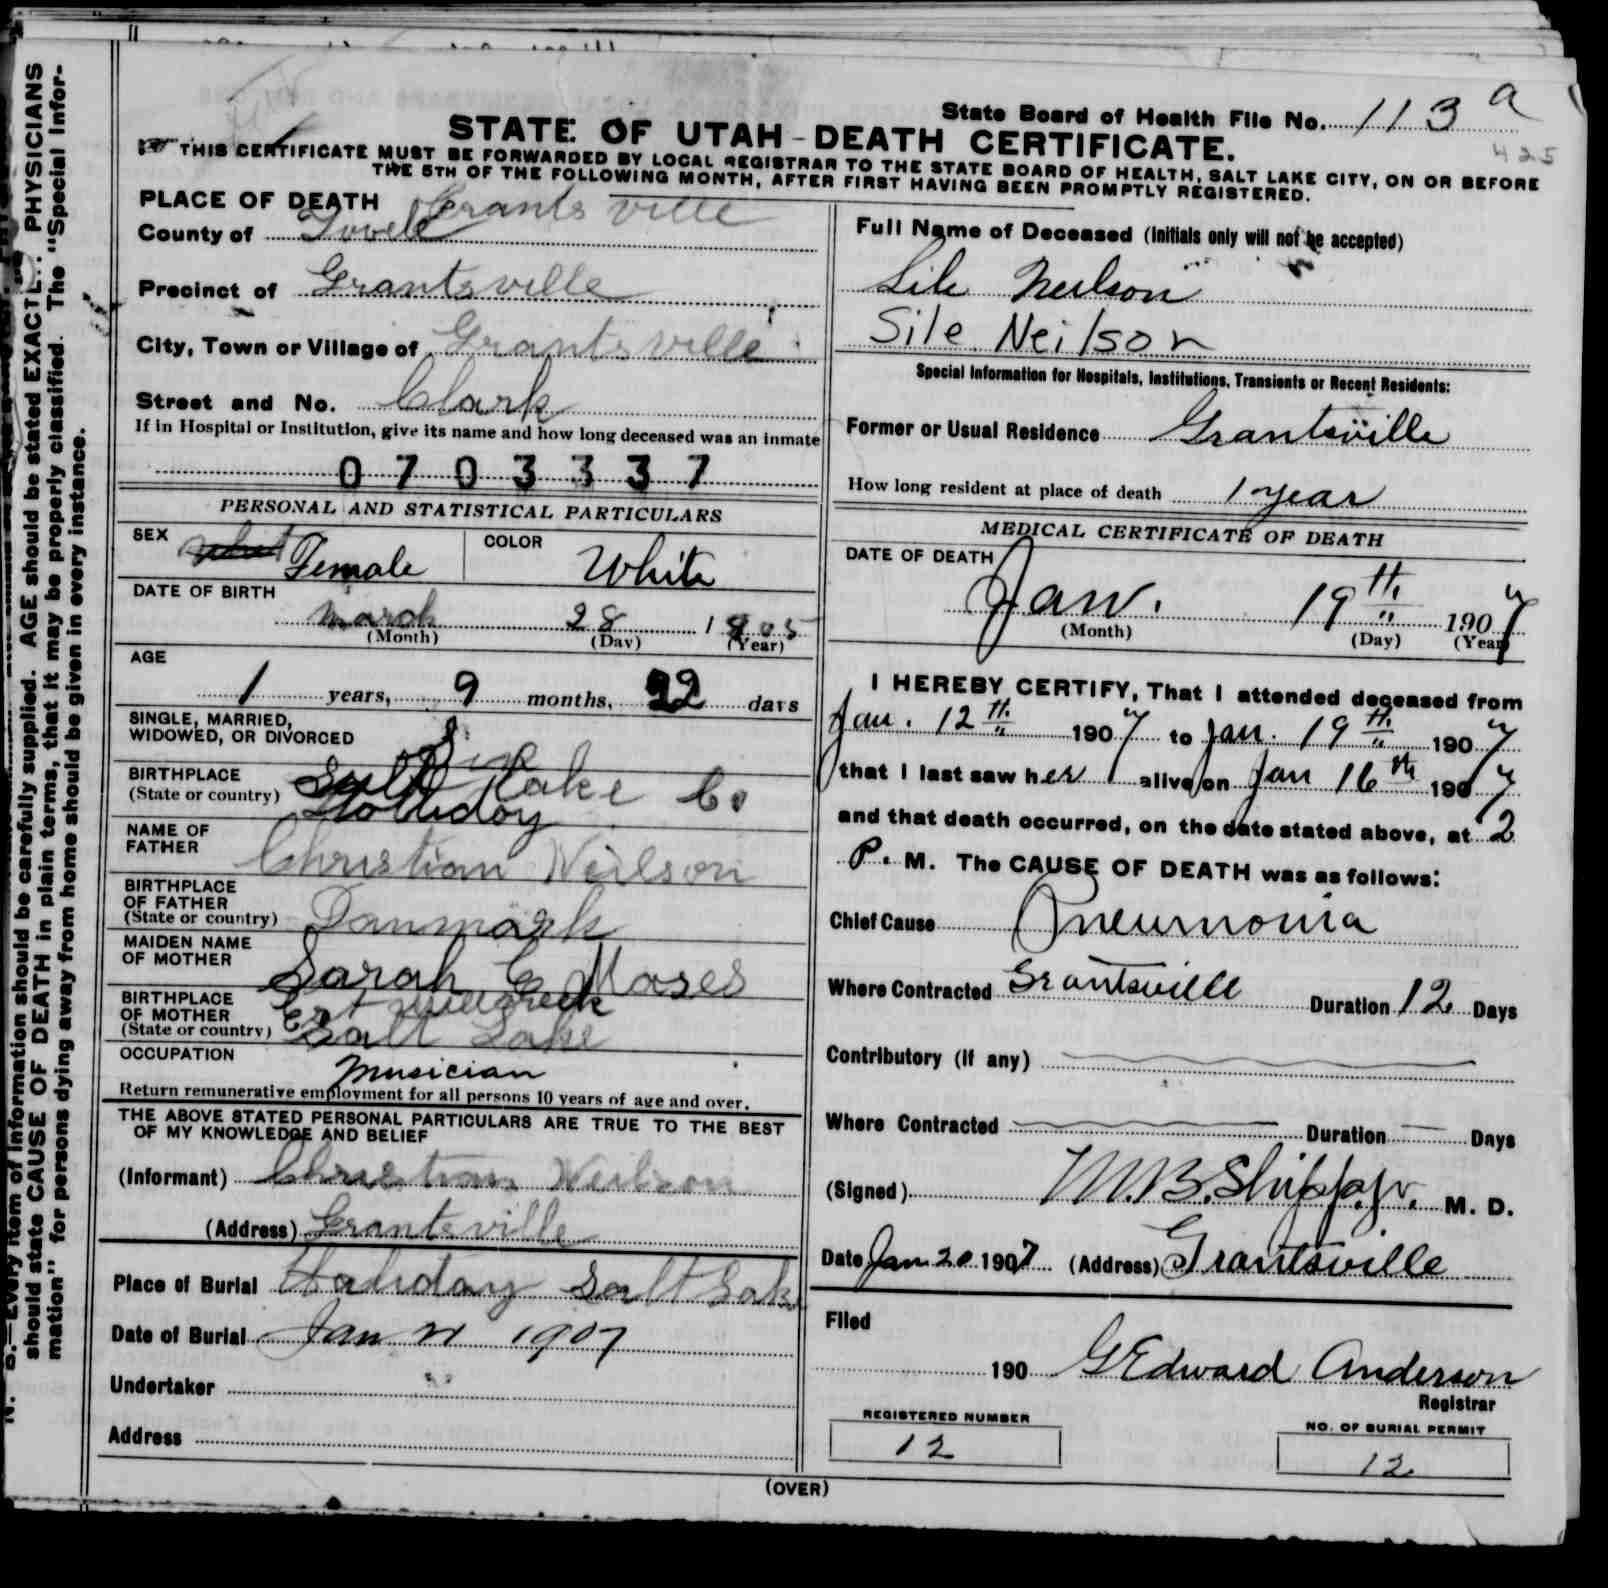 State Board of Health File No. 113 a
425
STATE OF UTAH - DEATH CERTIFICATE.
THIS CERTIFICATE MUST BE FORWARDED BY LOCAL REGISTRAR TO THE STATE BOARD OF HEALTH, SALT LAKE CITY, ON OR BEFORE
THE 5TH OF THE FOLLOWING MONTH, AFTER FIRST HAVING BEEN PROMPTLY REGISTERED.
PLACE OF DEATH Grantsville
County of Tooele
Precinct of Grantsville
City, Town or Village of Grantsville
Street and No. Clark
If in Hospital or Institution, give its name and how long deceased was an inmate
0703337
PERSONAL AND STATISTICAL PARTICULARS
SEX Female COLOR White
DATE OF BIRTH
March 28 1905
(Month) (Day) (Year)
AGE
1 years, 9 months, 22 days
SINGLE, MARRIED,
WIDOWED, OR DIVORCED
BIRTHPLACE
(State or country) Salt Lake Co
Holliday
NAME OF
FATHER Christian Neilson
BIRTHPLACE
OF FATHER
(State or country) Danmark
MAIDEN NAME
OF MOTHER Sarah E Moses
BIRTHPLACE
OF MOTHER
(State or country) Est Millcreek
Salt Lake
OCCUPATION
Musician
Return remunerative employment for all persons 10 years of age and over.
THE ABOVE STATED PERSONAL PARTICULARS ARE TRUE TO THE BEST
OF MY KNOWLEDGE AND BELIEF
(Informant) Christian Neilson
(Address) Grantsville
Place of Burial Haliday Salt Lake
Date of Burial Jan 21 1907
Undertaker
Address
Full Name of Deceased (Initials only will not be accepted)
Sile Neilson
Sile Neilson
Special Information for Hospitals, Institutions, Transients or Recent Residents:
Former or Usual Residence Grantsville
How long resident at place of death 1 year
MEDICAL CERTIFICATE OF DEATH
DATE OF DEATH
Jan. 19th 1907
(Month) (Day) (Year)
I HEREBY CERTIFY, That I attended deceased from
Jan. 12th 1907 to Jan. 19th 1907
that I last saw her alive on Jan 16th 1907
and that death occurred, on the date stated above, at 2
P. M. The CAUSE OF DEATH was as follows:
Chief Cause Pneumonia
Where Contracted Grantsville Duration 12 Days
Contributory (if any)
Where Contracted Duration — Days
(Signed) M.B. Shipp, Jr. M. D.
Date Jan 20 1907 (Address) Grantsville
Filed
190 G Edward Anderson
Registrar
REGISTERED NUMBER
12
NO. OF BURIAL PERMIT
12
(OVER)
N. B.—Every item of information should be carefully supplied. AGE should be stated EXACTLY. PHYSICIANS
should state CAUSE OF DEATH in plain terms, that it may be properly classified. The "Special Infor-
mation" for persons dying away from home should be given in every instance.